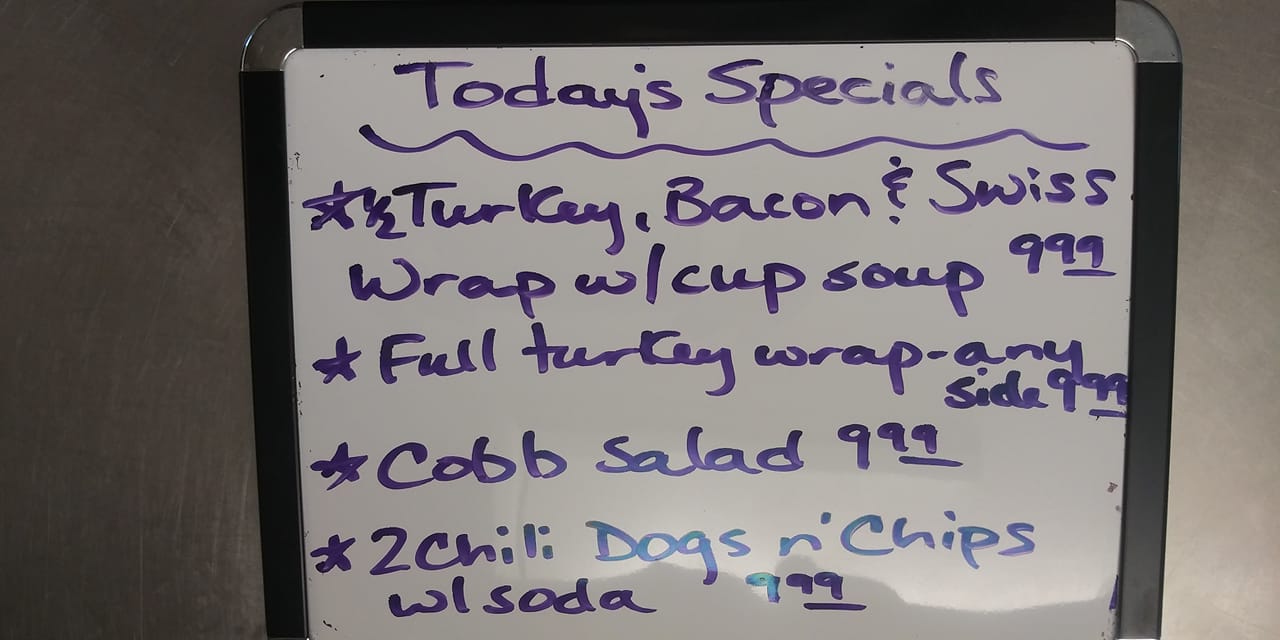 Today's Specials
*½ Turkey, Bacon & Swiss
Wrap w/cup soup 999
* Full turkey wrap-any
side 999
* Cobb Salad 999
* 2 Chili Dogs n' Chips
w/soda 999